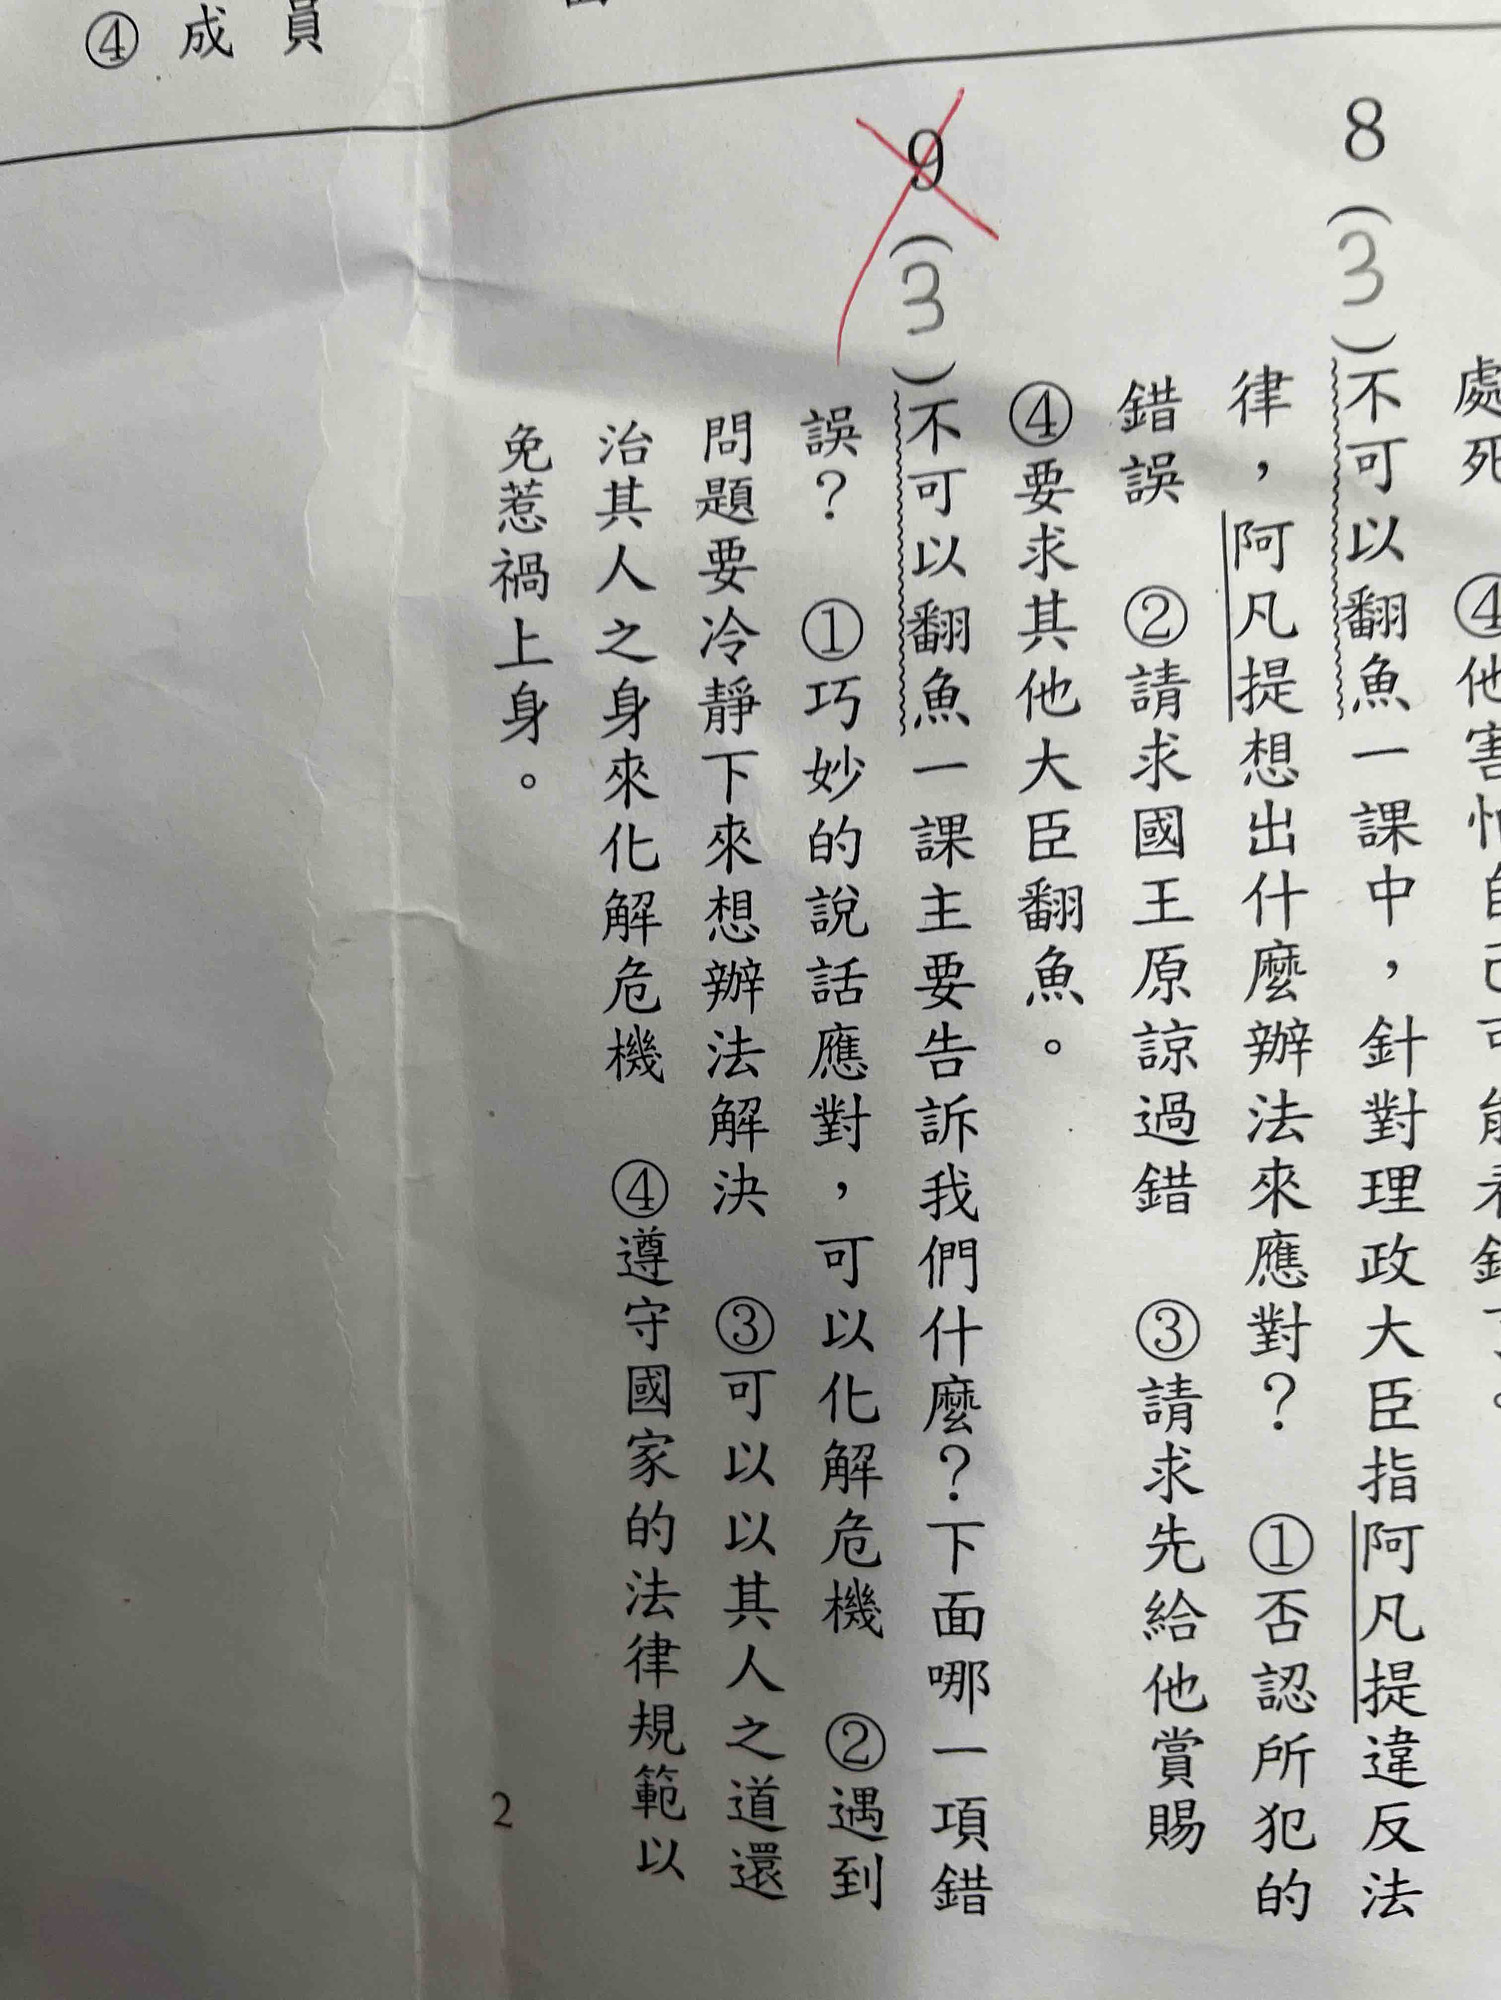 員
成
④
處死　④他害怕自己可能看錯了。
8（3）不可以翻魚一課中，針對理政大臣指阿凡提違反法
律，阿凡提想出什麼辦法來應對？　①否認所犯的
錯誤　②請求國王原諒過錯　③請求先給他賞賜
④要求其他大臣翻魚。
9（3）不可以翻魚一課主要告訴我們什麼？下面哪一項錯
誤？　①巧妙的說話應對，可以化解危機　②遇到
問題要冷靜下來想辦法解決　③可以以其人之道還
治其人之身來化解危機　④遵守國家的法律規範以
免惹禍上身。
2